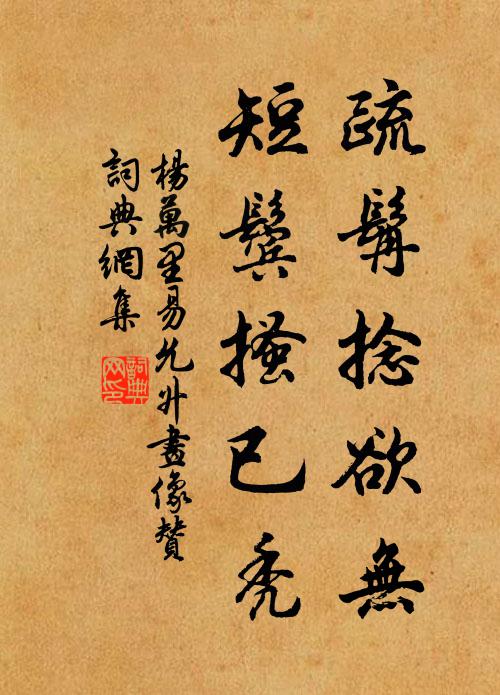 疏髯捻欲無
短鬢搔已禿
楊萬里易允升畫像贊
詞典網集
詞典
网印